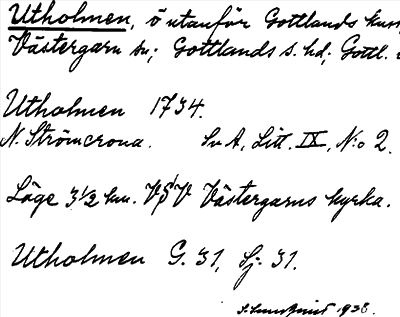 Utholmen, ö utanför Gottlands kust,
Västergarn sn; Gottlands s. hd; Gottl.
Utholmen 1734.
N. Strömcrona. Sv A, Litt. IX, N:o 2.
Läge 3 1/2 km. VSV Västergarns kyrka.
Utholmen G. 31, Sj. 31.
1938.